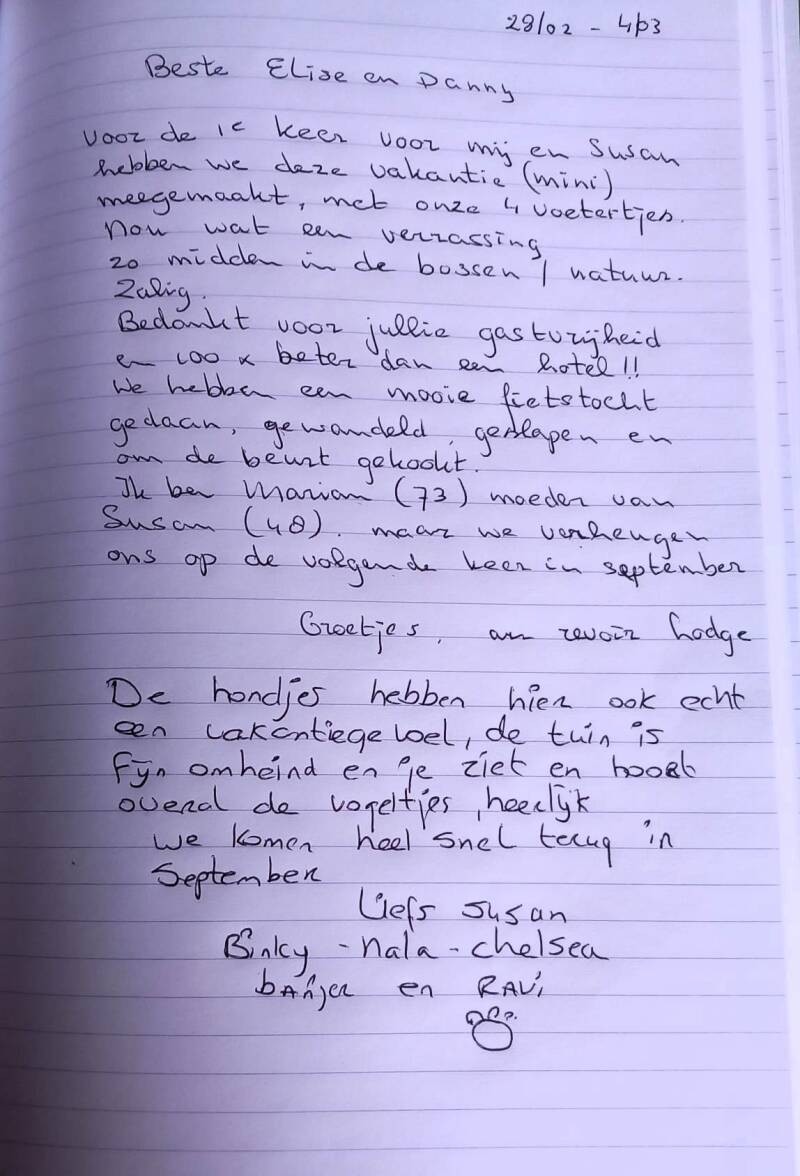 29/02 - 4/03
Beste Elise en Danny
Voor de 1e keer voor mij en Susan
hebben we deze vakantie (mini)
meegemaakt, met onze 4 voetertjes.
Nou wat een verrassing
zo midden in de bossen / natuur.
Zalig.
Bedankt voor jullie gastvrijheid
en 100 x beter dan een hotel!!
We hebben een mooie fietstocht
gedaan, gewandeld, geslapen en
om de beurt gekookt.
Ik ben Marian (73) moeder van
Susan (48). maar we verheugen
ons op de volgende keer in september
Groetjes, au revoir Lodge
De hondjes hebben hier ook echt
een vakantiegevoel, de tuin is
fijn omheind en je ziet en hoort
overal de vogeltjes, heerlijk
We komen heel snel terug in
September
Liefs Susan
Binky - Nala - Chelsea
banjer en RAVi